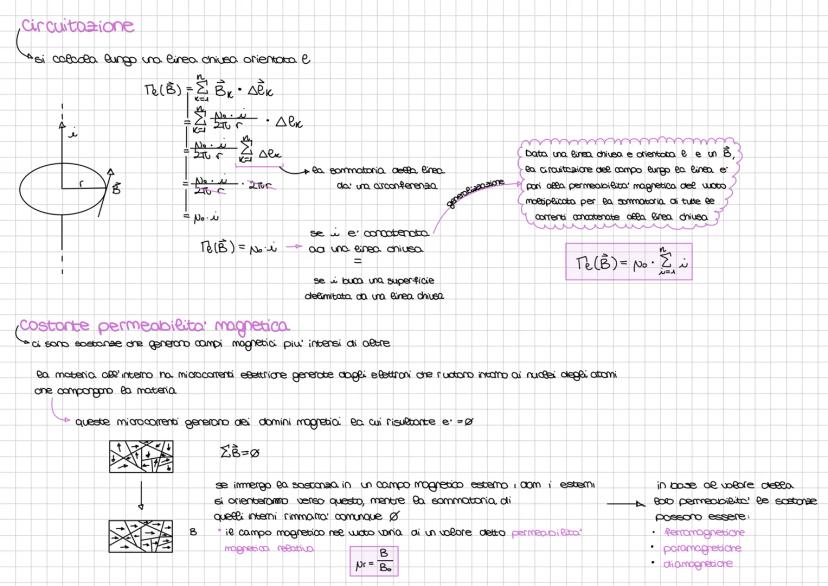 circuitazione
si calcola lungo una linea chiusa orientata ℓ
Γℓ(B⃗) = Σ_{k=1}^{n} B⃗k · Δℓ⃗k
= Σ_{k=1}^{n} μ₀·i / 2π r · Δℓk
= μ₀·i / 2π r Σ_{k=1}^{n} Δℓk
la sommatoria della linea
da' una circonferenza
= μ₀·i / 2π r · 2πr
= μ₀·i
i
r
B⃗
Γℓ(B⃗) = μ₀·i
se i e' concatenata
ad una linea chiusa
=
se i buca una superficie
delimitata da una linea chiusa
generalizzazione
Data una linea chiusa e orientata ℓ e un B⃗,
la circuitazione del campo lungo la linea e'
pari alla permeabilita' magnetica del vuoto
moltiplicata per la sommatoria di tutte le
correnti concatenate alla linea chiusa
Γℓ(B⃗) = μ₀ · Σ_{i=1}^{n} i
costante permeabilita' magnetica
ci sono sostanze che generano campi magnetici piu' intensi di altre
la materia all'interno ha microcorrenti elettriche generate dagli elettroni che ruotano intorno ai nuclei degli atomi
che compongono la materia
queste microcorrenti generano dei domini magnetici la cui risultante e' =ø
ΣB⃗=ø
se immergo la sostanza in un campo magnetico esterno i dom i esterni
si orienteranno verso questo, mentre la sommatoria di
quelli interni rimmarra' comunque ø
B
* il campo magnetico nel vuoto varia di un valore detto permeabilita'
magnetica relativa
μr = B / B₀
in base al valore della
loro permeabilita' le sostanze
possono essere:
• ferromagnetiche
• paramagnetiche
• diamagnetiche